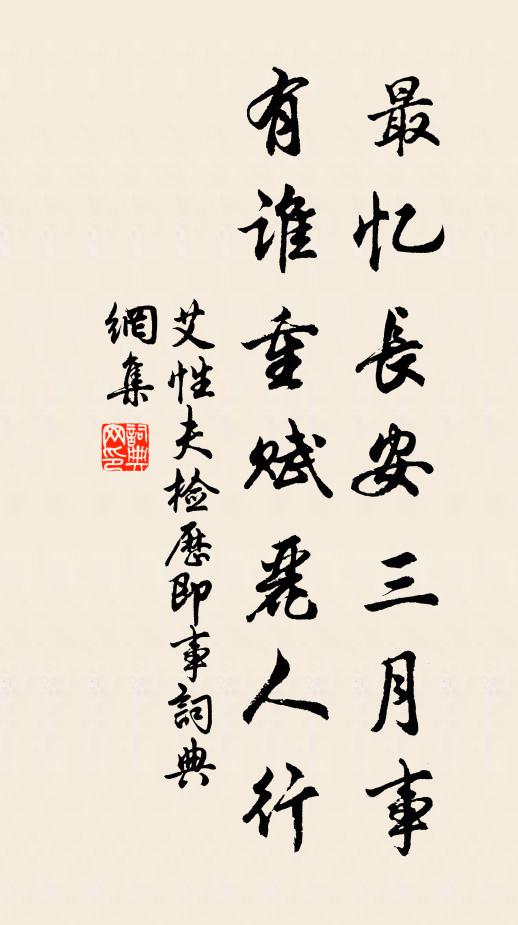 最忆長安三月事
有谁重赋麗人行
艾性夫检歷即事詞典
網集
詞典
网印